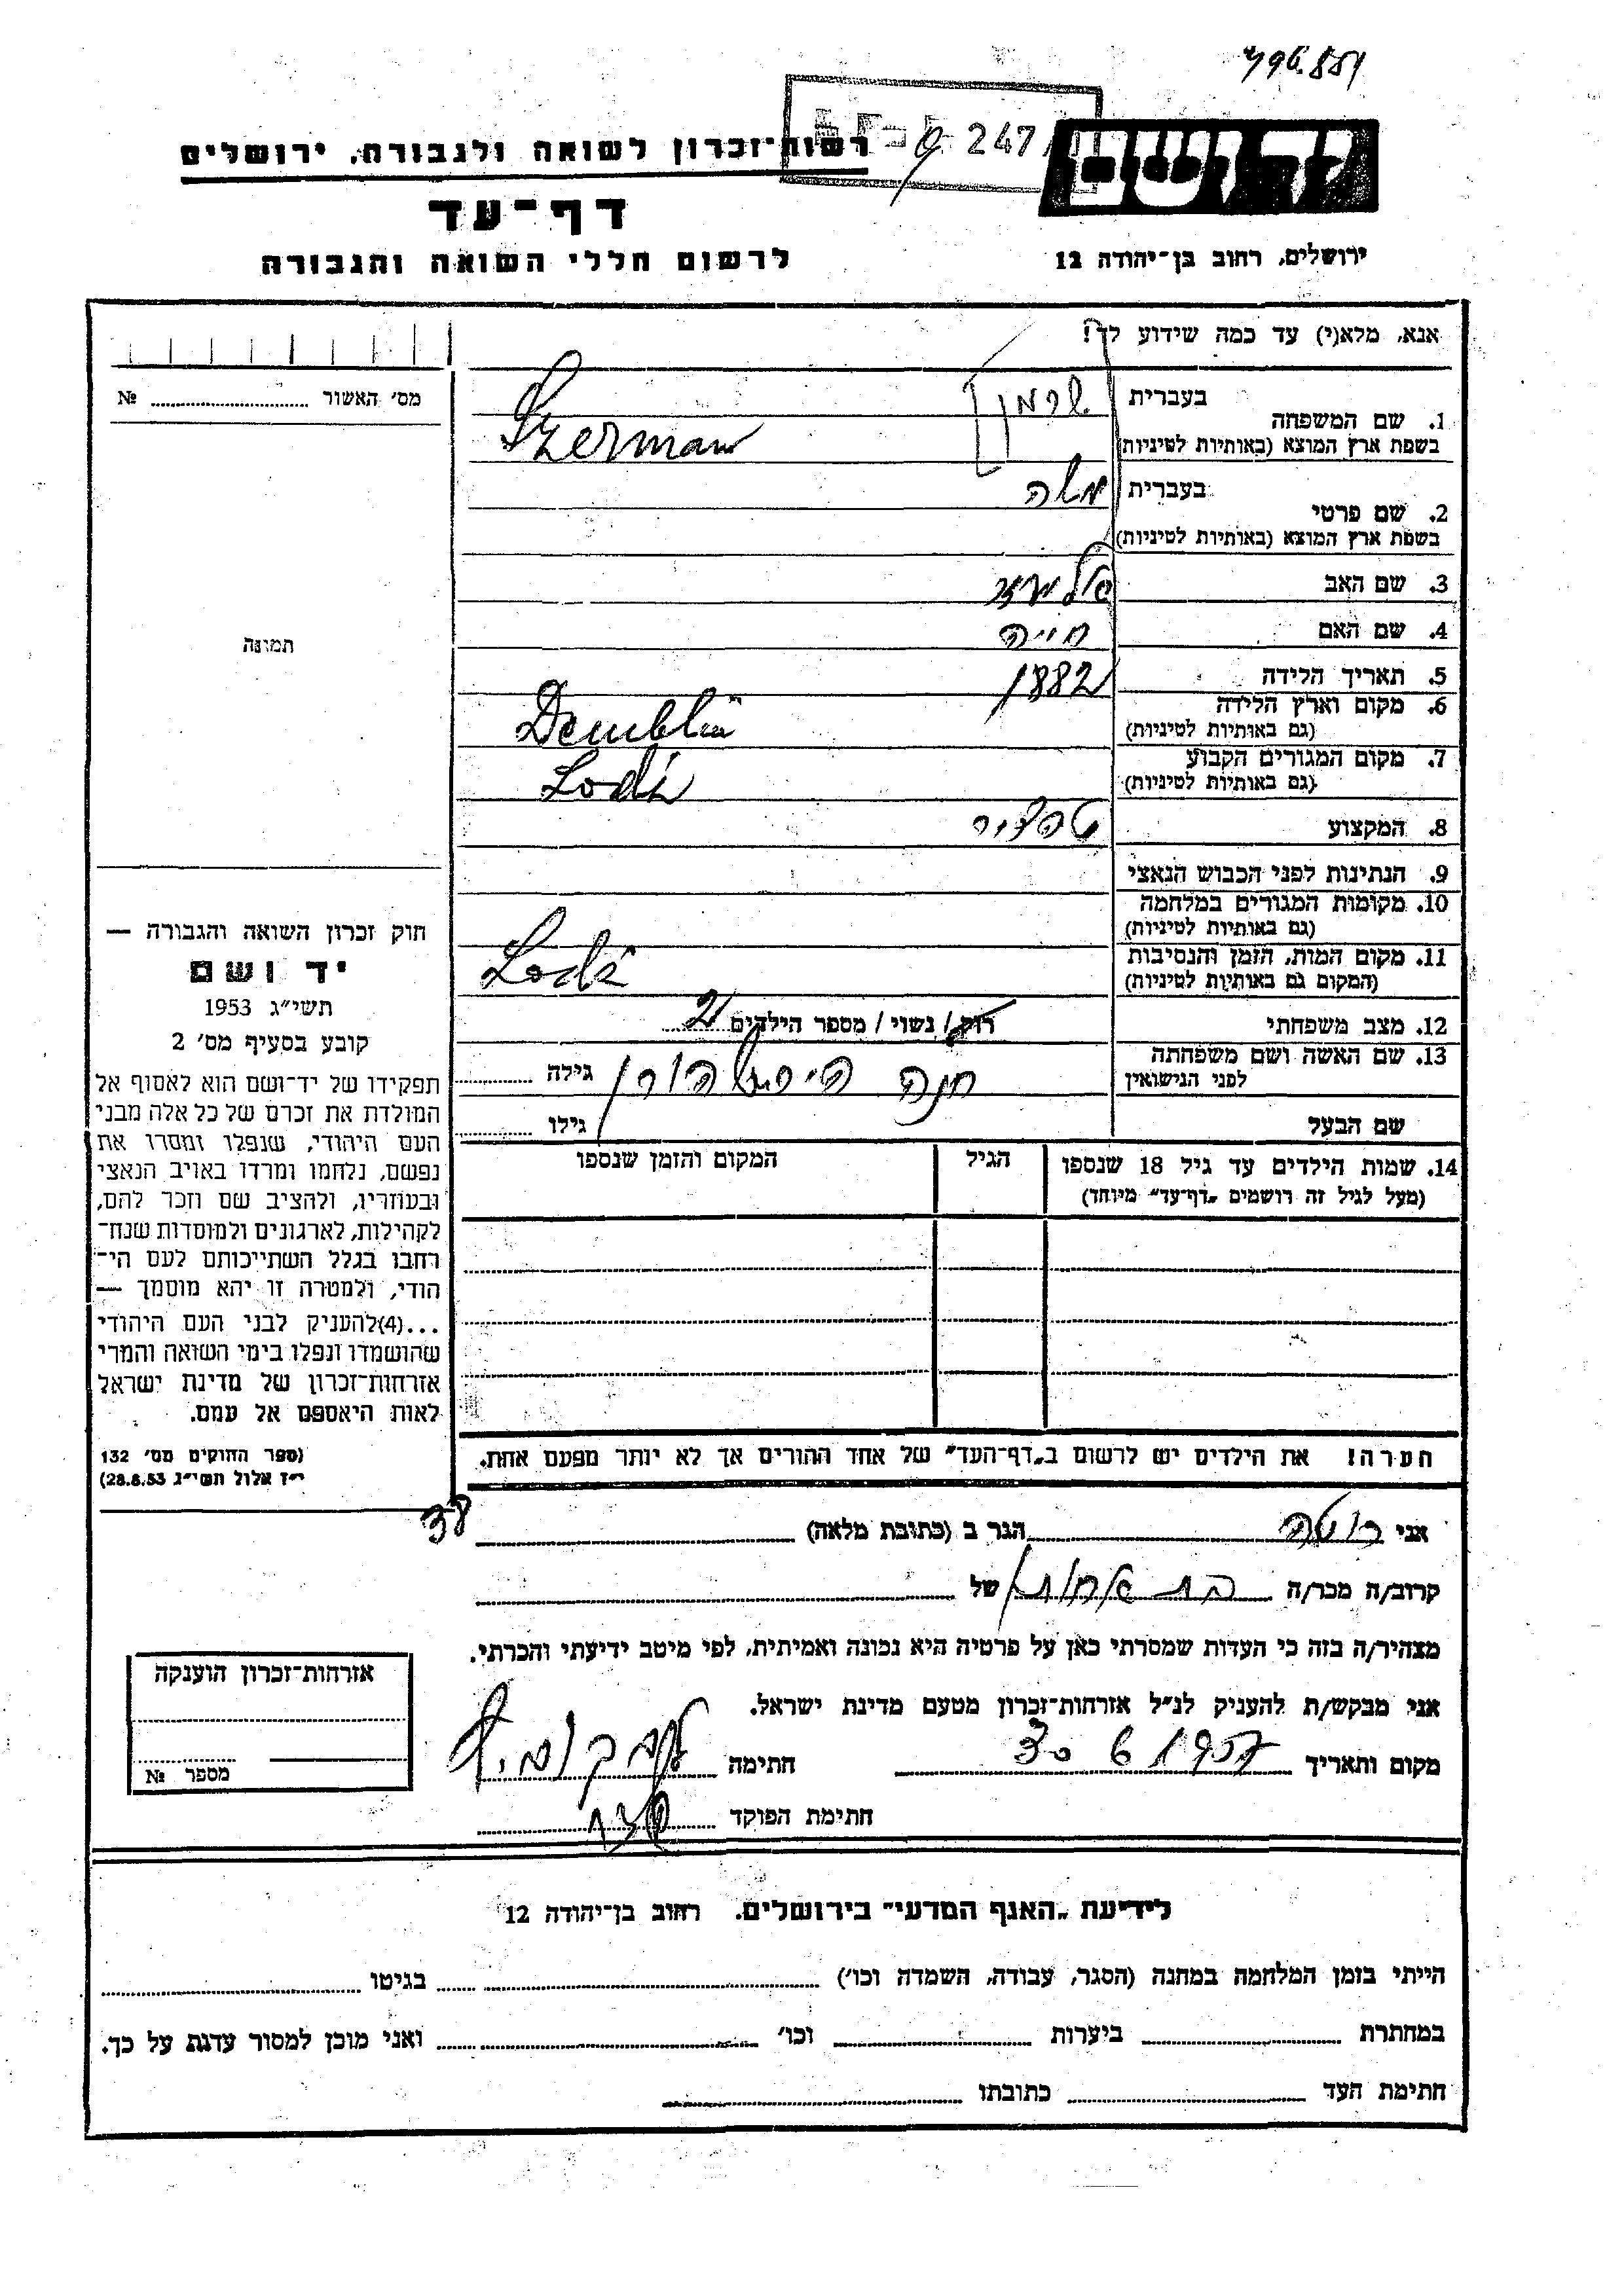 496.851
247
יד ושם
רשות־זכרון לשואה ולגבורה, ירושלים
דף־עד
ירושלים, רחוב בן־יהודה 12
לרשום חללי השואה והגבורה
אנא, מלא(י) עד כמה שידוע לך!
מס' האשור № 
1. שם המשפחה
בעברית שרמן
בשפת ארץ המוצא (באותיות לטיניות) Szerman
2. שם פרטי
בעברית משה
בשפת ארץ המוצא (באותיות לטיניות)
3. שם האב
4. שם האם חייה
תמונה
5. תאריך הלידה 1882
6. מקום וארץ הלידה
(גם באותיות לטיניות) Demblin
7. מקום המגורים הקבוע
(גם באותיות לטיניות) Lodź
8. המקצוע
9. הנתינות לפני הכבוש הנאצי
10. מקומות המגורים במלחמה
(גם באותיות לטיניות)
11. מקום המות, הזמן והנסיבות
(המקום גם באותיות לטיניות) Lodź
12. מצב משפחתי רוק / נשוי / מספר הילדים 2
13. שם האשה ושם משפחתה
לפני הנישואין חנה גילה
שם הבעל גילו
14. שמות הילדים עד גיל 18 שנספו
(מעל לגיל זה רושמים "דף־עד" מיוחד)
הגיל
המקום והזמן שנספו
הערה! את הילדים יש לרשום ב"דף־העד" של אחד ההורים אך לא יותר מפעם אחת.
חוק זכרון השואה והגבורה —
יד ושם
תשי"ג 1953
קובע בסעיף מס' 2
תפקידו של יד־ושם הוא לאסוף אל
המולדת את זכרם של כל אלה מבני
העם היהודי, שנפלו ומסרו את
נפשם, נלחמו ומרדו באויב הנאצי
ובעוזריו, ולהציב שם וזכר להם,
לקהילות, לארגונים ולמוסדות שנח־
רבו בגלל השתייכותם לעם הי־
הודי, ולמטרה זו יהא מוסמך —
...(4) להעניק לבני העם היהודי
שהושמדו ונפלו בימי השואה והמרי
אזרחות־זכרון של מדינת ישראל
לאות היאספם אל עמם.
(ספר החוקים מס' 132
י"ז אלול תשי"ג 28.8.53)
38
אני רוטה הגר ב (כתובת מלאה)
קרוב/ה מכר/ה בת אחותו של
מצהיר/ה בזה כי העדות שמסרתי כאן על פרטיה היא נכונה ואמיתית, לפי מיטב ידיעתי והכרתי.
אני מבקש/ת להעניק לנ"ל אזרחות־זכרון מטעם מדינת ישראל.
מקום ותאריך 30 6 1957 חתימה
חתימת הפוקד
אזרחות־זכרון הוענקה
מספר №
לידיעת "האגף המדעי" בירושלים. רחוב בן־יהודה 12
הייתי בזמן המלחמה במחנה (הסגר, עבודה, השמדה וכו') בגיטו
במחתרת ביערות וכו' ואני מוכן למסור עדות על כך.
חתימת העד כתובתו